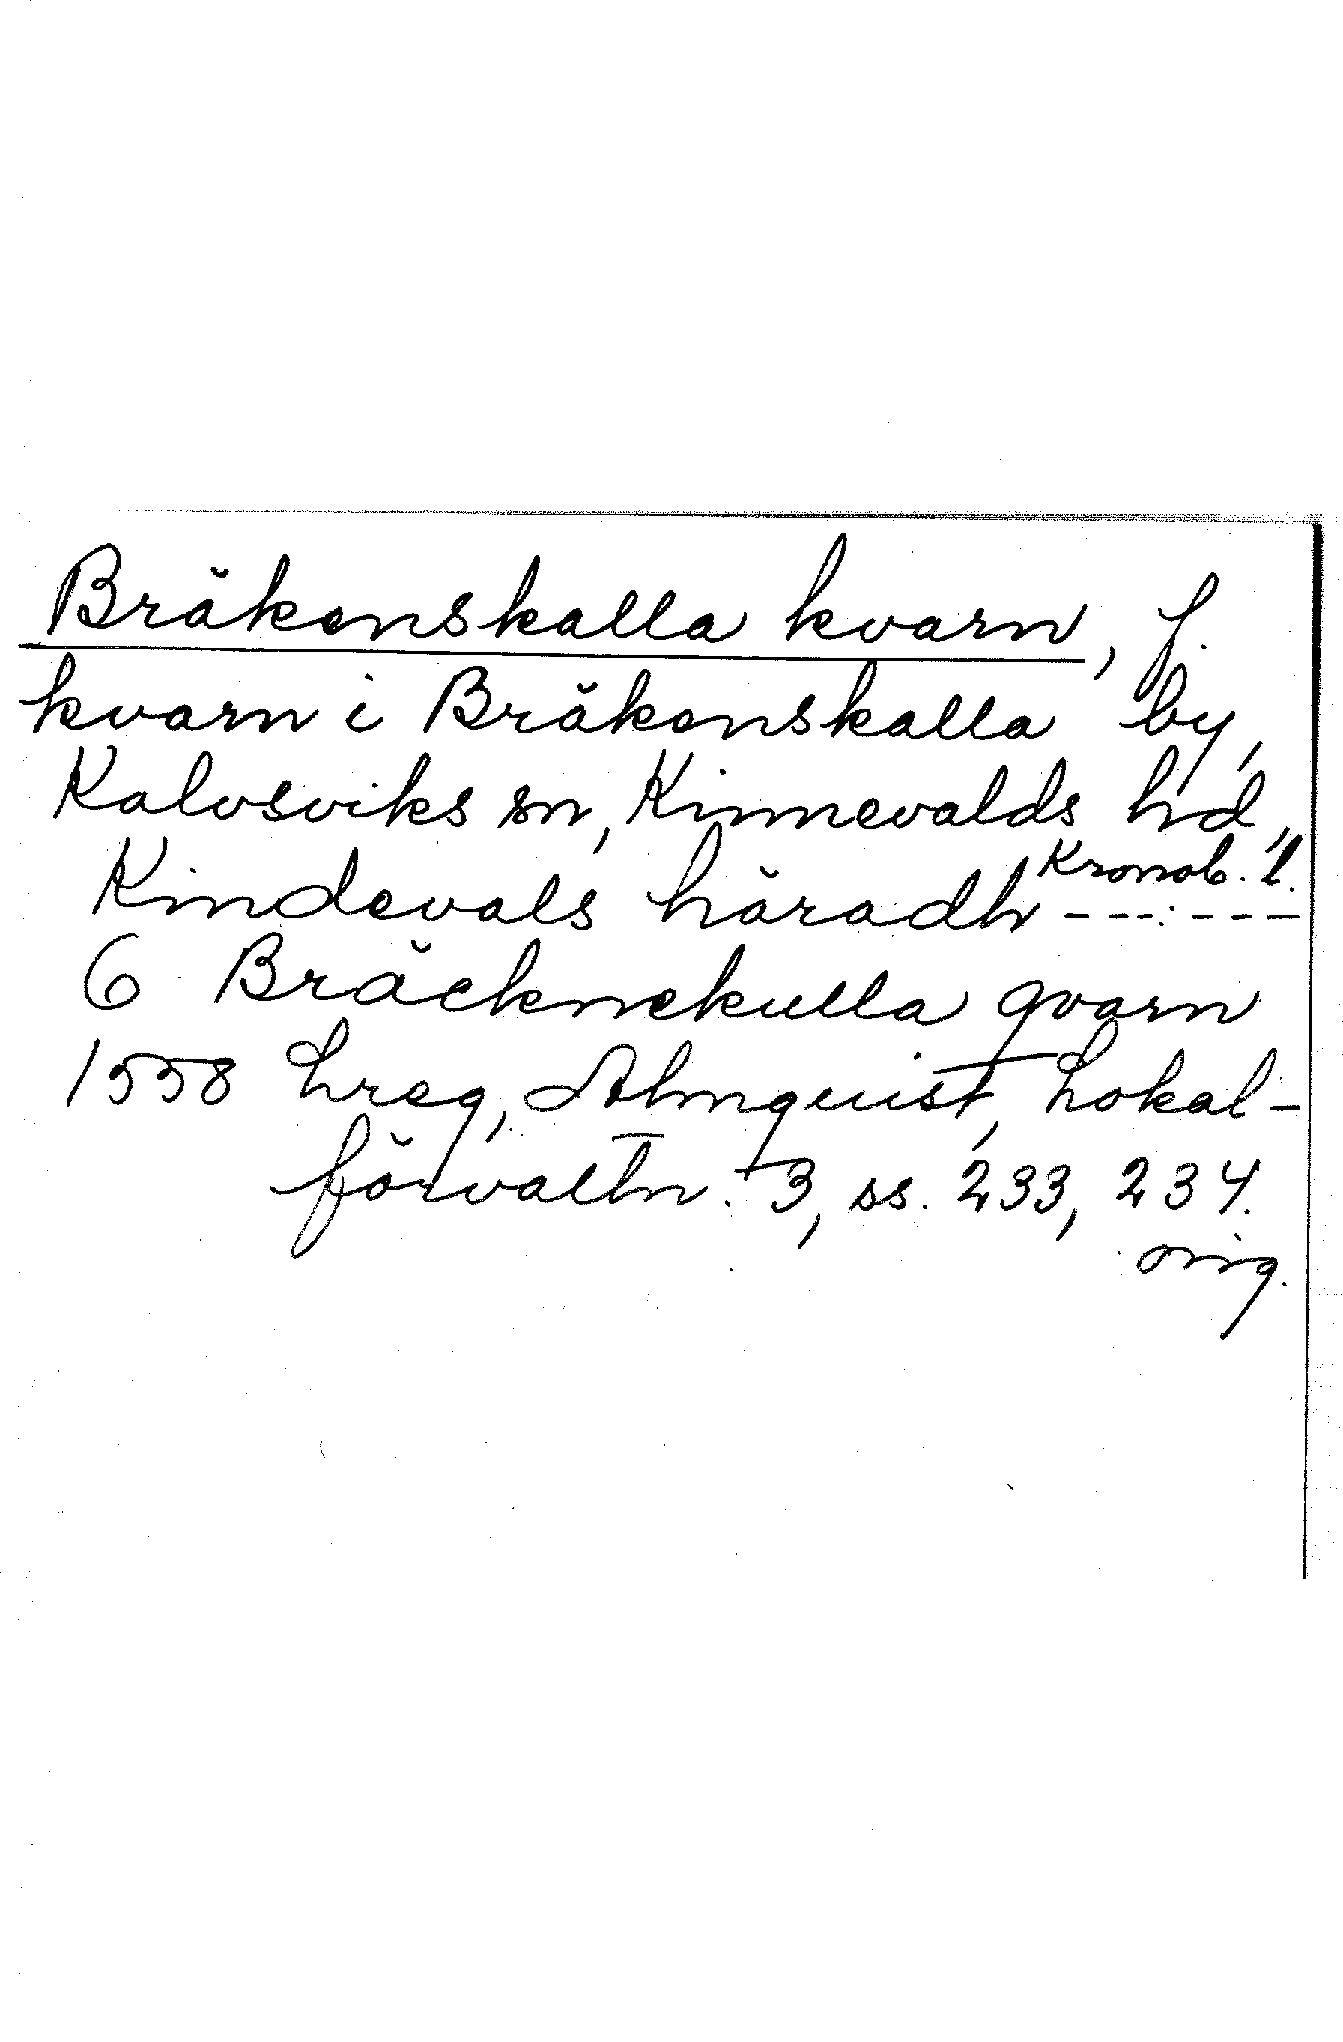 Bräkenskalla kvarn, f.
kvarn i Bräkenskalla by,
Kalvsviks sn, Kinnevalds hd,
Kronob. l.
Kindevals häradh - - - : - - -
6 Bräcknekulla qvarn
1558 hreg, Almquist, Lokal-
förvaltn. 3, ss. 233, 234.
orig.